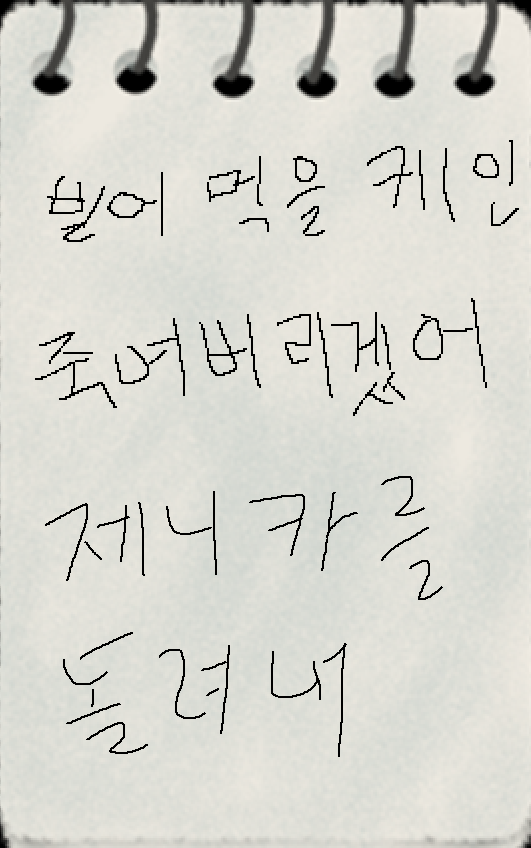 빌어 먹을 케인
죽여버리겠어
제니카를
돌려내